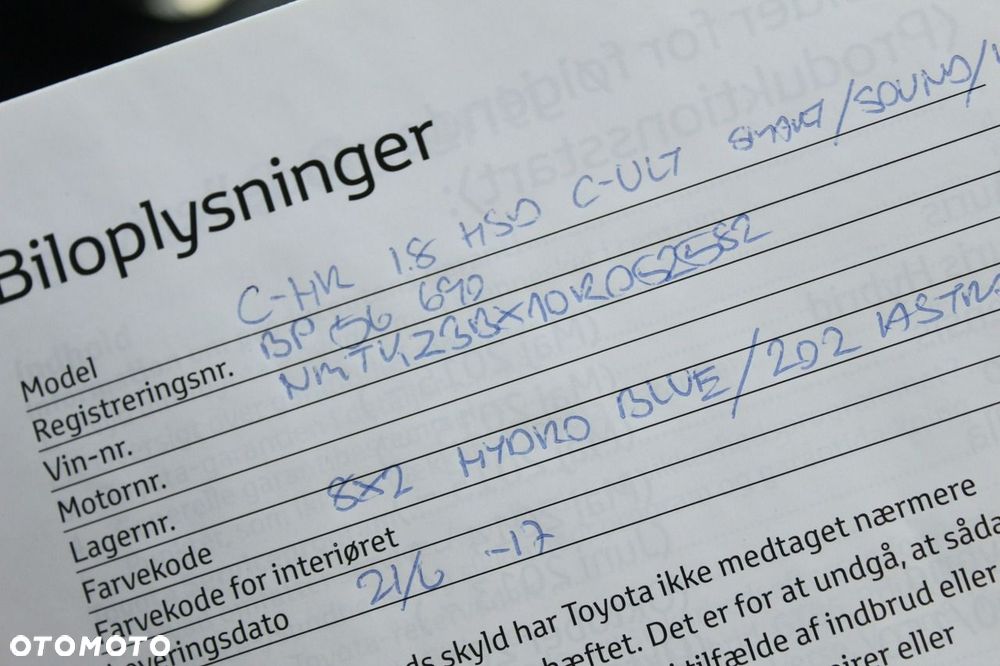 Biloplysninger
Model C-HR 1.8 HSD C-ULT SMART/SOUND/
Registreringsnr. BP 56 690
Vin-nr. NMTKZ3BX10R062582
Motornr.
Lagernr.
Farvekode 8X2 HYDRO BLUE/202 ASTR
Farvekode for interiøret
Leveringsdato 21/6 -17
skyld har Toyota ikke medtaget nærmere
hæftet. Det er for at undgå, at såda
tilfælde af indbrud eller
eller
OTOMOTO